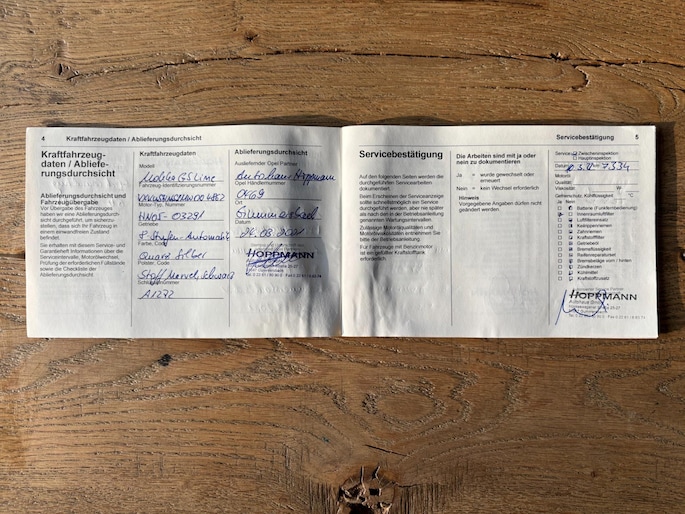 4 Kraftfahrzeugdaten / Ablieferungsdurchsicht
Kraftfahrzeug-
daten / Abliefe-
rungsdurchsicht
Ablieferungsdurchsicht und
Fahrzeugübergabe
Vor Übergabe des Fahrzeuges
haben wir eine Ablieferungsdurch-
sicht durchgeführt, um sicherzu-
stellen, dass sich Ihr Fahrzeug in
einem einwandfreien Zustand
befindet.
Sie erhalten mit diesem Service- und
Garantieheft Informationen über die
Serviceintervalle, Motorölwechsel,
Prüfung der erforderlichen Füllstände
sowie die Checkliste der
Ablieferungsdurchsicht
Kraftfahrzeugdaten
Modell
Mokka GS Line
Fahrzeug-Identifizierungsnummer
Motor-Typ, Nummer
HN05-03291
Getriebe
8 Stufen-Automatik
Farbe, Code
Quarz Silber
Polster, Code
Stoff Marvel, Schwarz
A1272
Ablieferungsdurchsicht
Ausliefernder Opel Partner
Autohaus Hoppmann
Opel Händlernummer
Ort
Gummersbach
Datum
HOPPMANN
Servicebestätigung 5
Servicebestätigung
Auf den folgenden Seiten werden die
durchgeführten Servicearbeiten
dokumentiert.
Beim Erscheinen der Serviceanzeige
sollte schnellstmöglich ein Service
durchgeführt werden, aber nie später
als nach den in der Betriebsanleitung
genannten Wartungsintervallen.
Zulässige Motorölqualitäten und
Motorölviskositäten entnehmen Sie
bitte der Betriebsanleitung.
Für Fahrzeuge mit Benzinmotor
ist ein gefüllter Kraftstofftank
erforderlich.
Die Arbeiten sind mit ja oder
nein zu dokumentieren
Ja = wurde gewechselt oder
erneuert
Nein = kein Wechsel erforderlich
Hinweis
Vorgegebene Angaben dürfen nicht
geändert werden
Service
Zwischeninspektion
Hauptinspektion
Datum
7.334
Motoröl
Qualität
Viskosität W
Gefrierschutz, Kühlflüssigkeit °C
Ja Nein
Batterie (Funkfernbedienung)
Innenraumluftfilter
Luftfiltereinsatz
Keilrippenriemen
Zahnriemen
Kraftstofffilter
Getriebeöl
Bremsflüssigkeit
Reifenreparaturset
Bremsbeläge vorn / hinten
Zündkerzen
Kühlmittel
Kraftstoffzusatz
HOPPMANN
Autohaus GmbH